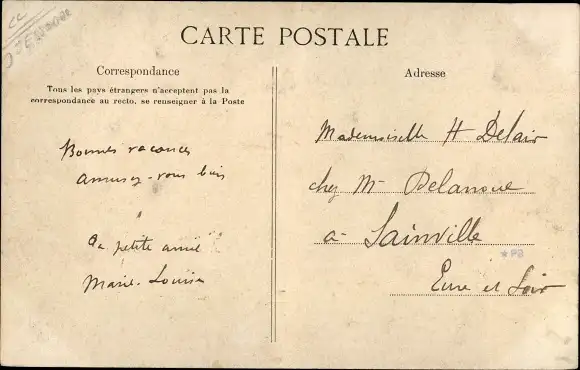 CARTE POSTALE
Correspondance
Tous les pays étrangers n'acceptent pas la
correspondance au recto, se renseigner à la Poste
Bonnes vacances
amusez-vous bien
petite amie
Marie-Louise
Adresse
Mademoiselle H Delair
chez Mr Delanoue
à Sainville
★PB
Eure et Loir